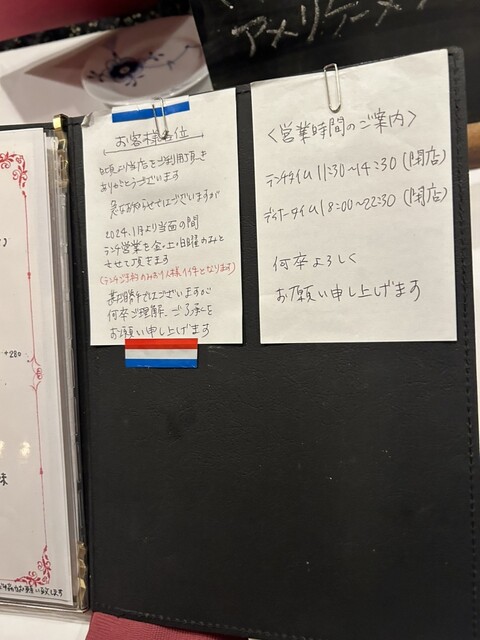 アメリケーヌ
お客様各位
日頃より当店をご利用頂き
ありがとうございます
急なお知らせではございますが
2024.1月より当面の間
ランチ営業を金・土・日曜のみと
させて頂きます
勝手ではございますが
何卒ご理解、ご了承を
お願い申し上げます
<営業時間のご案内>
ランチタイム 11:30〜14:30 (閉店)
ディナータイム 18:00〜22:30 (閉店)
何卒よろしく
お願い申し上げます
+280
味
お願い致します